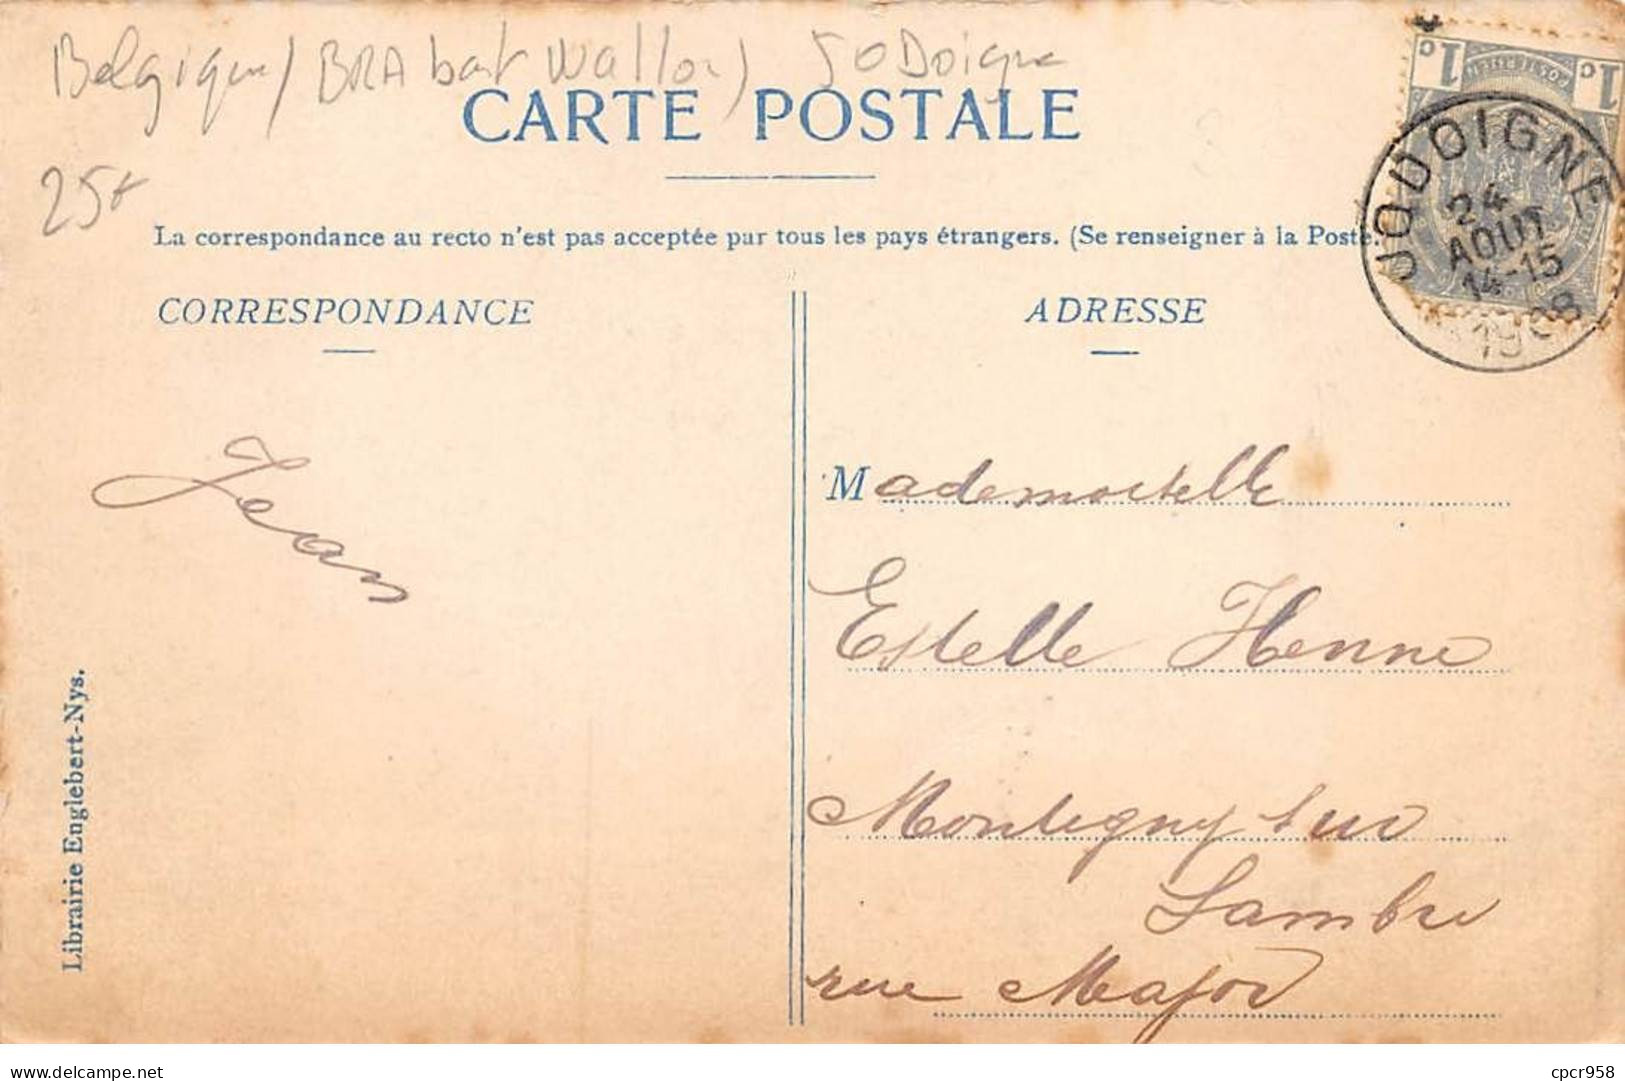 Belgique / BRAbant Wallon) JODoigne
CARTE POSTALE
25f
La correspondance au recto n'est pas acceptée par tous les pays étrangers. (Se renseigner à la Poste.
CORRESPONDANCE
ADRESSE
1c 1c
POSTERIJEN
JODOIGNE
24
AOUT
14-15
1908
Jean
Mademoiselle
Estelle Henne
Montigny sur
Sambre
rue Major
Librairie Englebert-Nys.
delcampe.net
cpcr958